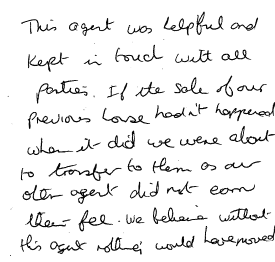 This agent was helpful and
kept in touch with all
parties. If the sale of our
previous house hadn't happened
when it did we were about
to transfer to them as our
other agent did not earn
their fee. We believe without
this agent nothing would have moved